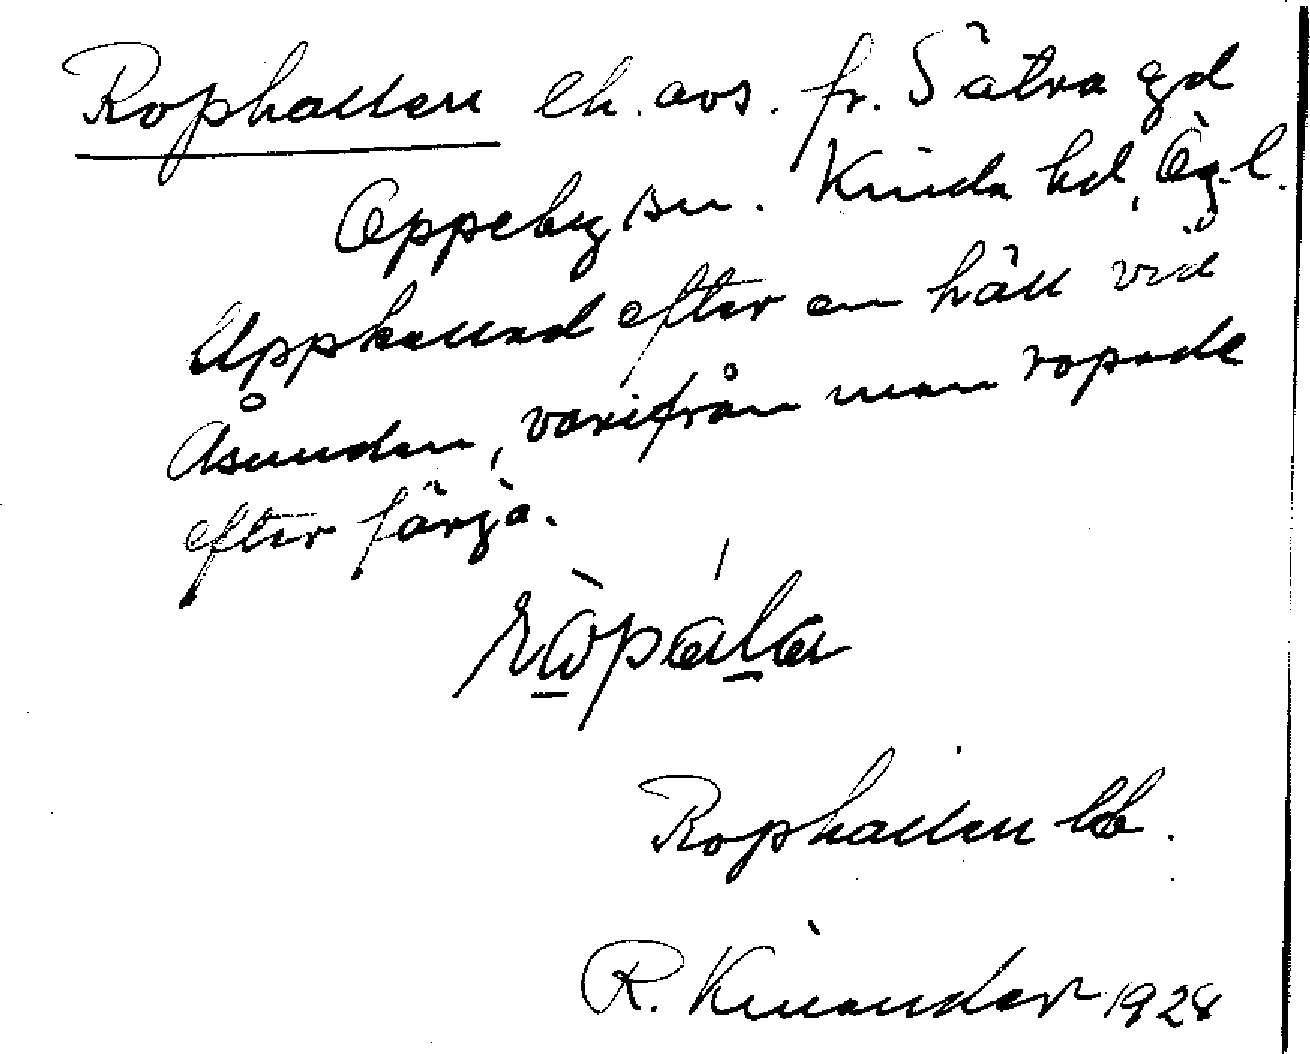 Rophallen lh. avs. fr. Sätra gd
Oppeby sn. Kinda hd, Ög.l.
Uppkallad efter en häll vid
Åsunden, varifrån man ropade
efter färja.
Rophallen
R. Kinander 1928